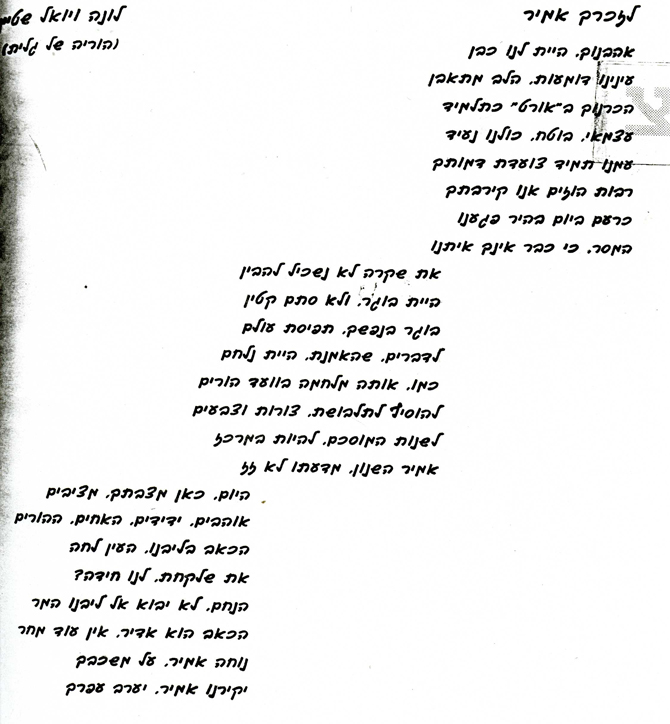 לזכרך אמיר
לונה ויואל
(הוריה של גלית)
אהבנוך. היית לנו כבן
עינינו דומעות. הלב מתאבן
הכרנוך ב"אורט" כתלמיד
עצמאי. בוטח. כולנו נעיד
עמנו תמיד צועדת דמותך
רבות הוזים אנו קירבתך
כרעם ביום בהיר פגענו
המסר. כי כבר אינך איתנו
את שקרה לא נשכיל להבין
היית בוגר. ולא סתם קטין
בוגר בנפשך. תפיסת עולם
לדברים. שהאמנת. היית נלחם
כמו. אותה מלחמה בוועד הורים
להוסיף לתלבושת. צורות וצבעים
לשנות המוסכם. להיות במרכז
אמיר השנון. מדעתו לא זז
היום. כאן מצבתך. מציבים
אוהבים. ידידים. האחים. ההורים
הכאב בליבנו. העין לחה
את שלקחת. לנו חידה?
הנחם. לא יבוא אל ליבנו המר
הכאב הוא אדיר. אין עוד מחר
נוחה אמיר. על משכבך
יקירנו אמיר. יערב עפרך